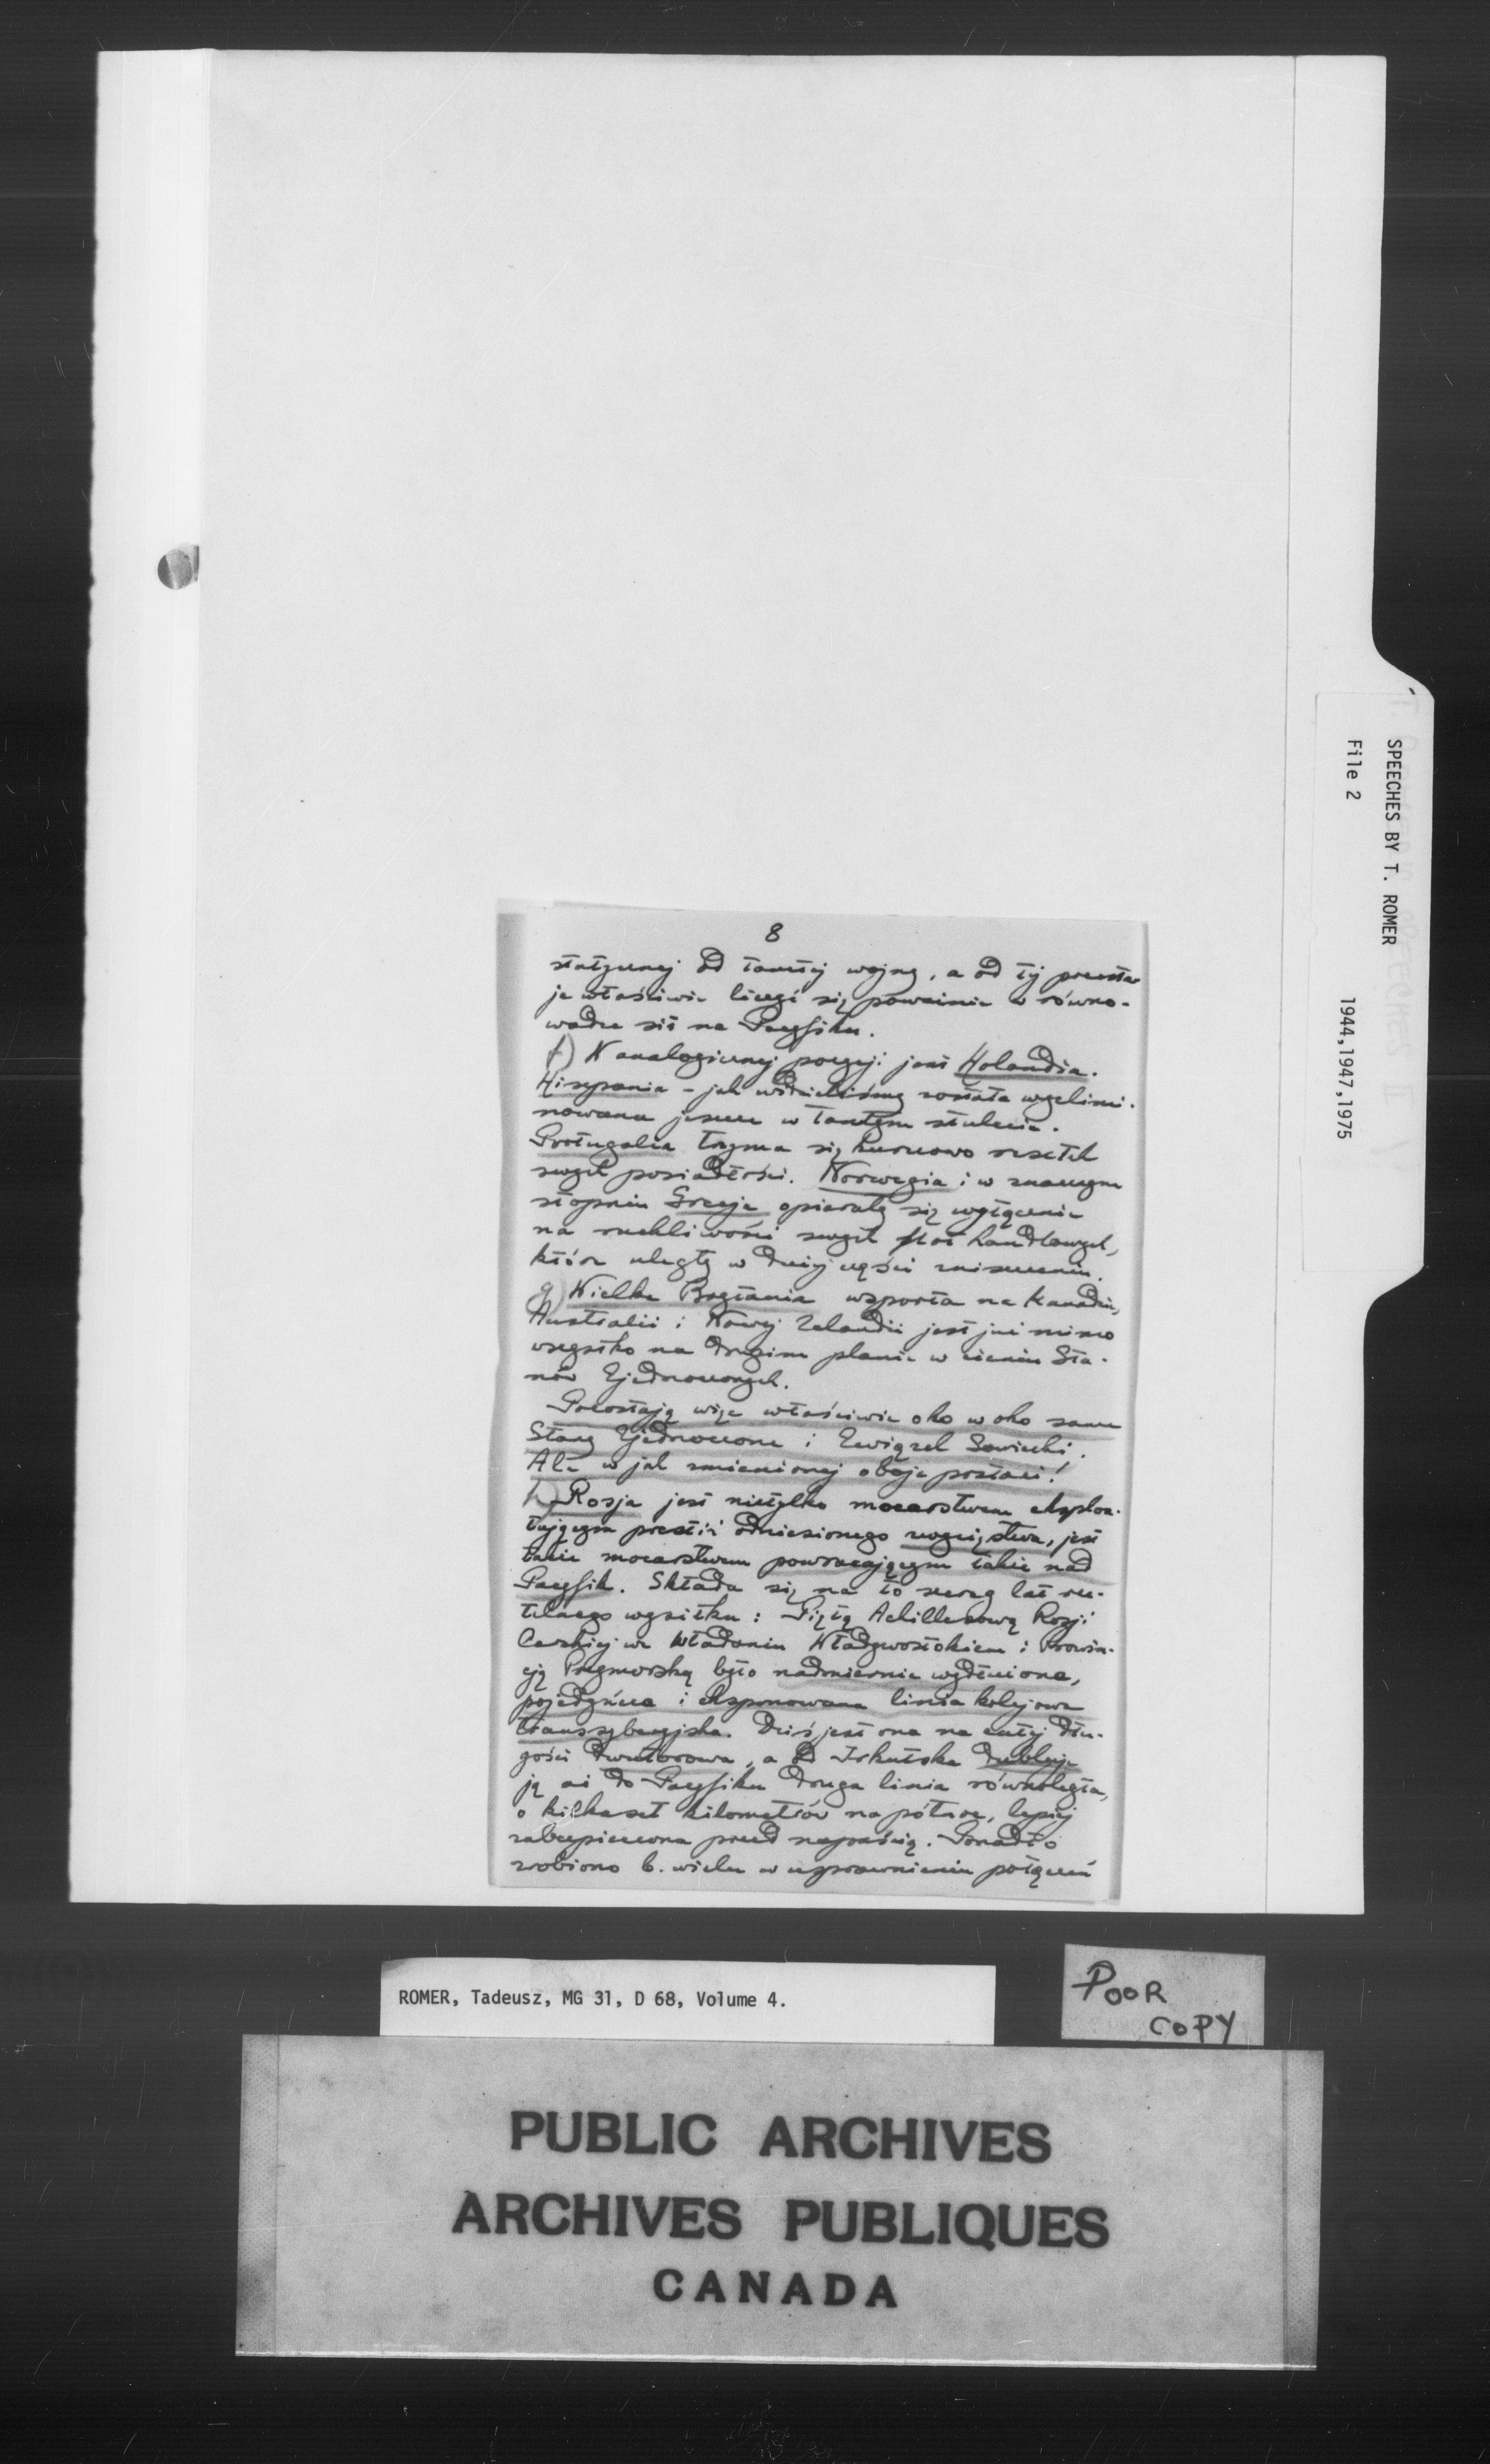 8
statycznej od tamtej wojny, a od tej przesta-
je właściwie liczyć się poważnie w równo-
wadze sił na Pacyfiku.
f) W analogicznej pozycji jest Holandia.
Hiszpania – jak widzieliśmy została wyelimi-
nowana jeszcze w tamtym stuleciu.
Portugalia trzyma się kurczowo resztek
swych posiadłości. Norwegia i w znacznym
stopniu Grecja opierały się wyłącznie
na ruchliwości swych flot handlowych,
które uległy w dużej części zniszczeniu.
g) Wielka Brytania wsparta na Kanadzie,
Australii i Nowej Zelandii jest już mimo
wszystko na drugim planie w cieniu Sta-
nów Zjednoczonych.
Pozostają więc właściwie oko w oko same
Stany Zjednoczone i Związek Sowiecki.
Ale w jak zmienionej oboje postaci!
h) Rosja jest nietylko mocarstwem eksploa-
tującym prestiż odniesionego zwycięstwa, jest
także mocarstwem powracającym także nad
Pacyfik. Składa się na to szereg lat rze-
telnego wysiłku: Piętą Achillesową Rosji
Carskiej we władaniu Władywostokiem i Prowin-
cją Przymorską było nadmiernie wydłużona,
pojedyńcza i eksponowana linia kolejowa
transsyberyjska. Dziś jest ona na całej dłu-
gości dwutorowa, a od Irkutska dubluje
ją aż do Pacyfiku druga linia równoległa,
o kilkaset kilometrów na północ, lepiej
zabezpieczona przed napaścią. Ponadto
zrobiono b. wiele w usprawnieniu połączeń
SPEECHES BY T. ROMER
File 2
1944,1947,1975
ROMER, Tadeusz, MG 31, D 68, Volume 4.
POOR
COPY
PUBLIC ARCHIVES
ARCHIVES PUBLIQUES
CANADA